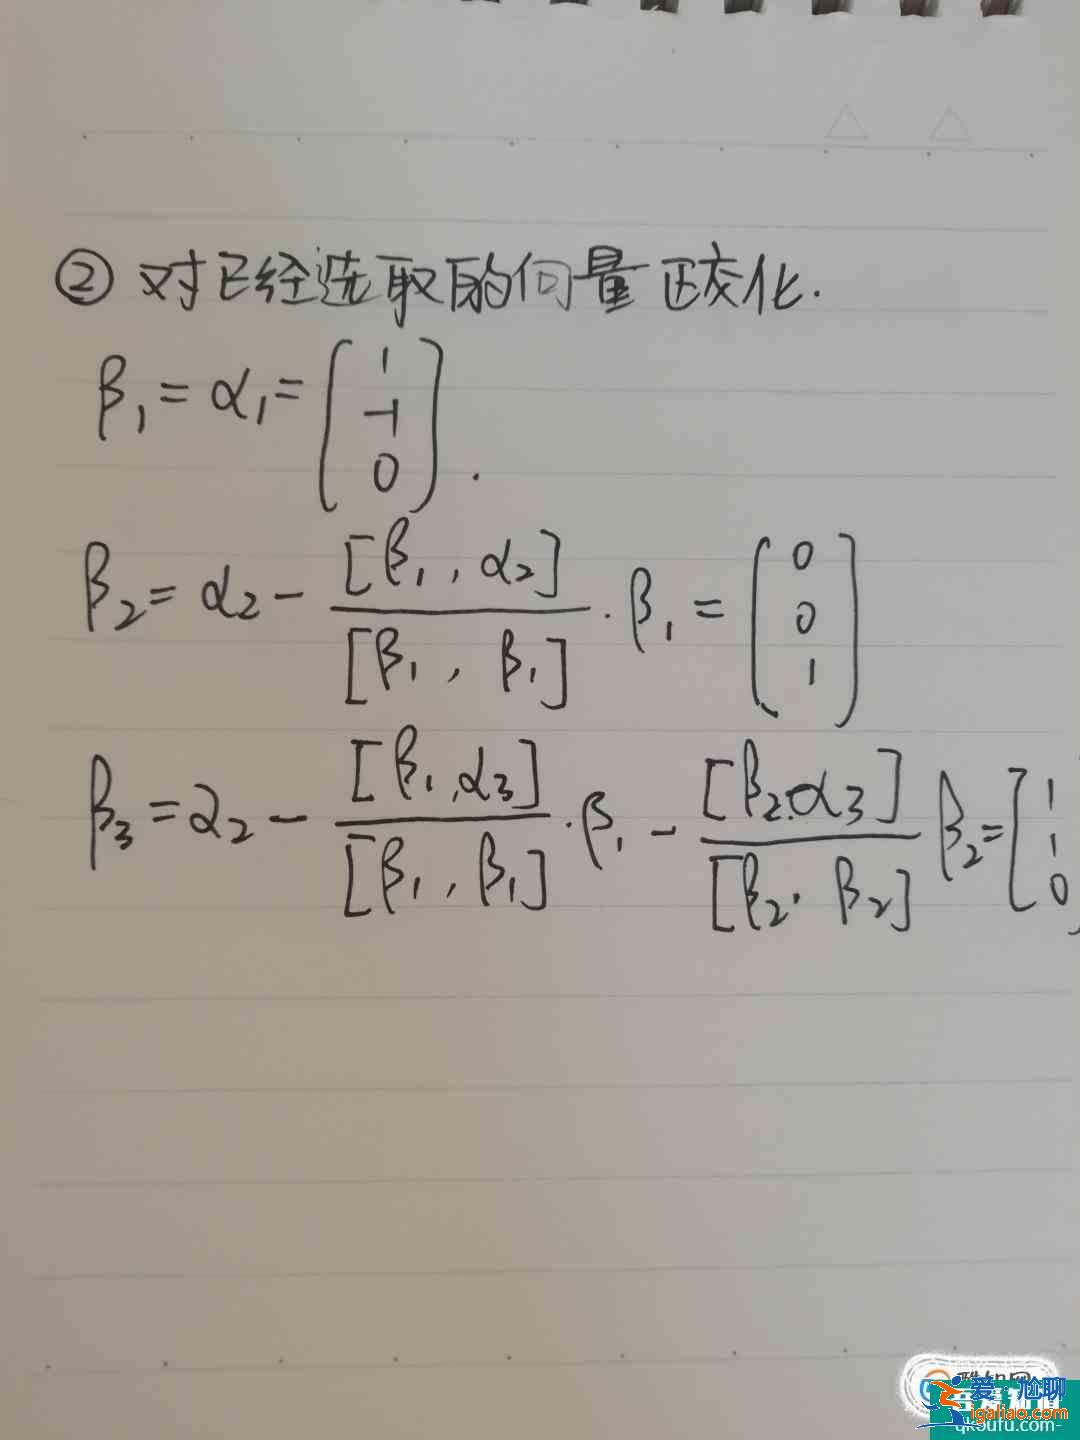 ② 对已经选取的向量正交化.
β₁ = α₁ = (1 -1 0).
β₂ = α₂ - [β₁, α₂] / [β₁, β₁] · β₁ = (0 0 1)
β₃ = α₂ - [β₁, α₃] / [β₁, β₁] · β₁ - [β₂, α₃] / [β₂, β₂] β₂ = [1 1 0)
爱尬聊
igaliao.com
qkoufu.com